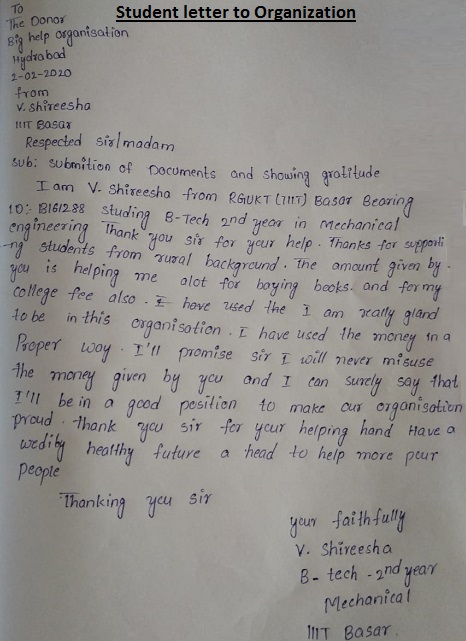 Student letter to Organization
To
The Donor
Big help organisation
Hydrabad
2-02-2020
from
V. Shireesha
IIIT Basar
Respected sir/madam
sub: submition of Documents and showing gratitude
I am V. Shireesha from RGUKT (IIIT) Basar Bearing
ID:- B161288 studing B-Tech 2nd year in Mechanical
engineering Thank you sir for your help. Thanks for supporti
-ng students from rural background. The amount given by
you is helping me alot for boying books. and for my
college fee also. I have used the I am really gland
to be in this organisation. I have used the money in a
Proper way. I'll promise sir I will never misuse
the money given by you and I can surely say that
I'll be in a good position to make our organisation
proud. thank you sir for your helping hand Have a
healthy future a head to help more peur
people
Thanking you sir
your faithfully
V. Shireesha
B-tech-2nd year
Mechanical
IIIT Basar.